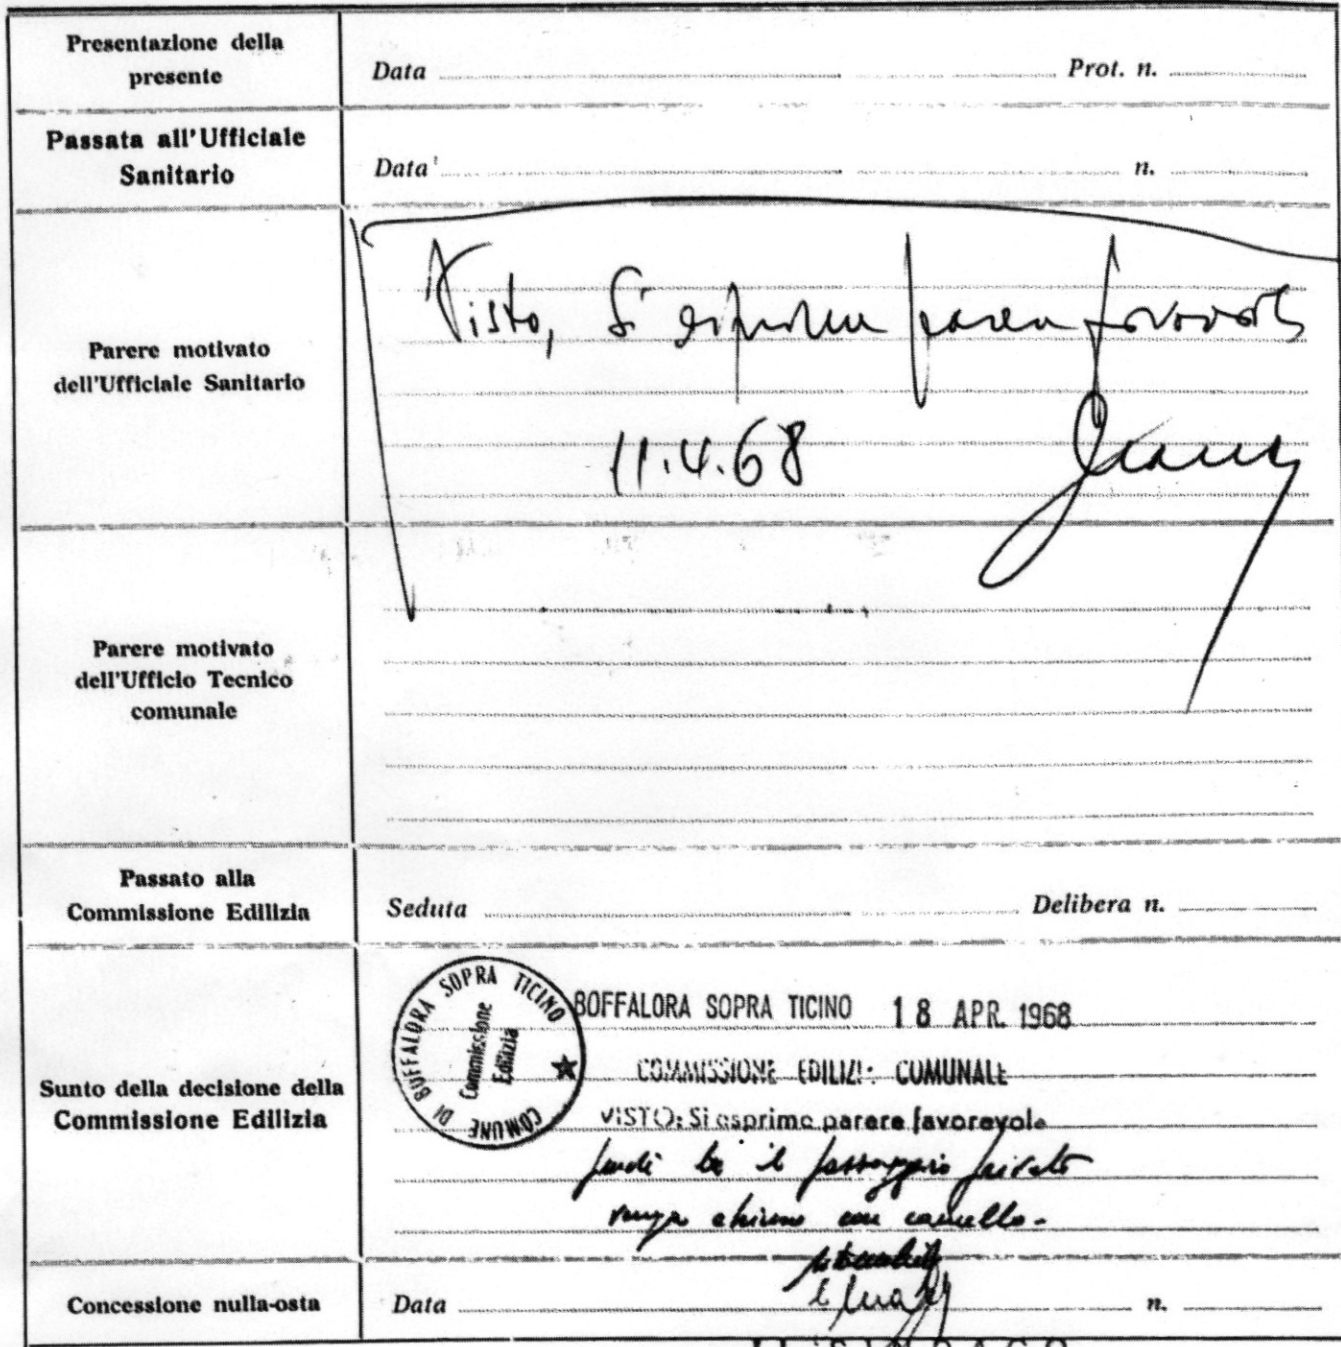 Presentazione della
presente
Data Prot. n.
Passata all'Ufficiale
Sanitario
Data n.
Parere motivato
dell'Ufficiale Sanitario
Visto, Si esprime parere favorevole
11.4.68
Parere motivato
dell'Ufficio Tecnico
comunale
Passato alla
Commissione Edilizia
Seduta Delibera n.
Sunto della decisione della
Commissione Edilizia
COMUNE DI BUFFALORA SOPRA TICINO
Commissione
Edilizia
BOFFALORA SOPRA TICINO 18 APR. 1968
COMMISSIONE EDILIZI: COMUNALE
VISTO: Si esprime parere favorevole
il passaggio privato
venga chiuso con cancello.
Concessione nulla-osta
Data n.
IL SINDACO